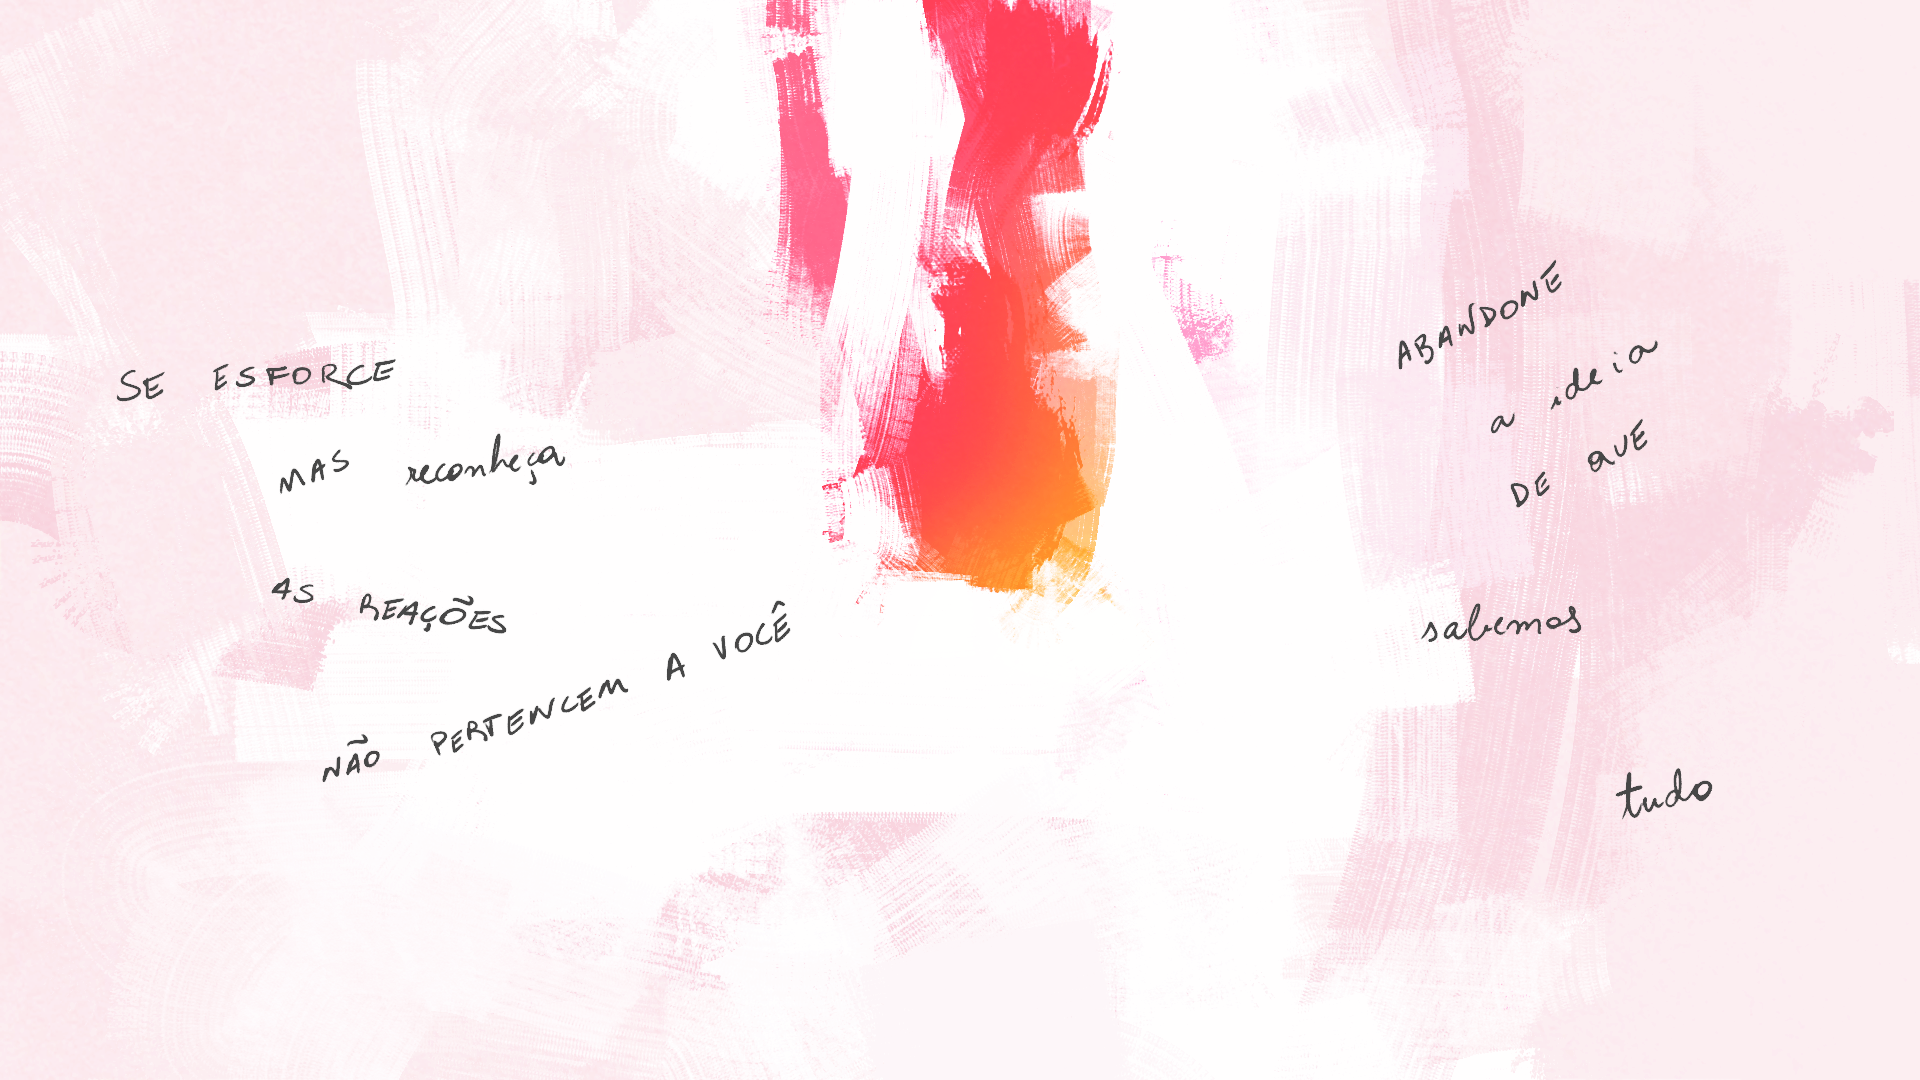 SE ESFORCE
MAS reconheça
AS REAÇÕES
NÃO PERTENCEM A VOCÊ
ABANDONE
a ideia
DE QUE
sabemos
tudo